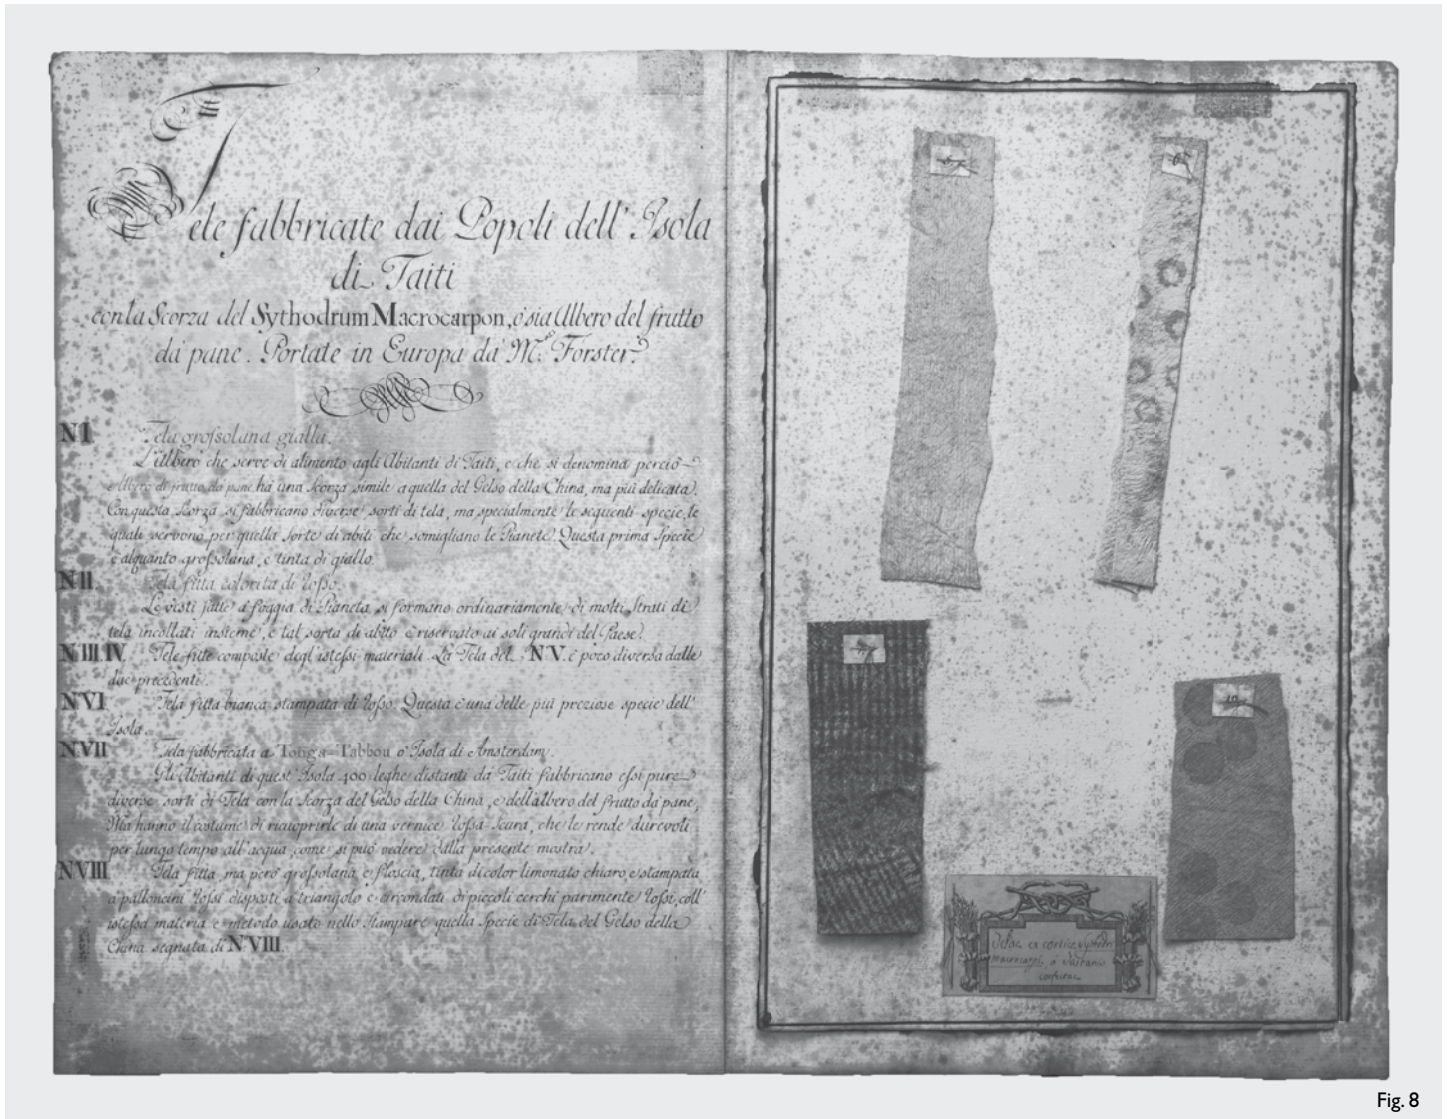 Tele fabbricate dai Popoli dell' Isola
di Taiti
con la Scorza del Sythodrum Macrocarpon, ò sia Albero del frutto
da' pane. Portate in Europa da' M.r Forster.
N I. Tela grossolana gialla.
L'albero che serve di alimento agli Abitanti di Taiti, e che si denomina perciò
Albero di frutto da pane há una Scorza simile a quella del Gelso della China, ma più delicata.
Con questa Scorza si fabbricano diverse sorti di tela, ma specialmente le seguenti specie, le
quali servono per quella sorte di abiti che somigliano le Pianete. Questa prima Specie
è alquanto grossolana, e tinta di giallo.
N II. Tela fitta colorita di rosso.
Le vesti fatte a foggia di Pianeta, si formano ordinariamente di molti strati di
tela incollati insieme, e tal sorta di abito è riservato ai soli grandi del Paese.
N III. IV. Tele fitte composte degl'istessi materiali. La Tela del N V. è poco diversa dalle
due precedenti.
N VI. Tela fitta bianca stampata di rosso. Questa è una delle più preziose specie dell'
Isola.
N VII. Tela fabbricata a Tonga-Tabbou ò Isola di Amsterdam.
Gli Abitanti di quest' Isola 400 leghe distanti da Taiti fabbricano essi pure
diverse sorti di Tela con la Scorza del Gelso della China, e dell'albero del frutto da' pane,
Ma hanno il costume di ricuoprirle di una vernice rossa-scura, che le rende durevoli
per lungo tempo all'acqua come si può vedere dalla presente mostra.
N VIII. Tela fitta ma però grossolana e floscia, tinta di color limonato chiaro, e stampata
a palloncini rossi disposti a triangolo e circondati di piccoli cerchi parimente rossi, coll'
istessa materia e metodo usato nello stampare quella Specie di Tela del Gelso della
China segnata di N VIII.
Telae ex cortice
macrocarpi, a Taitanis
confectae
Fig. 8